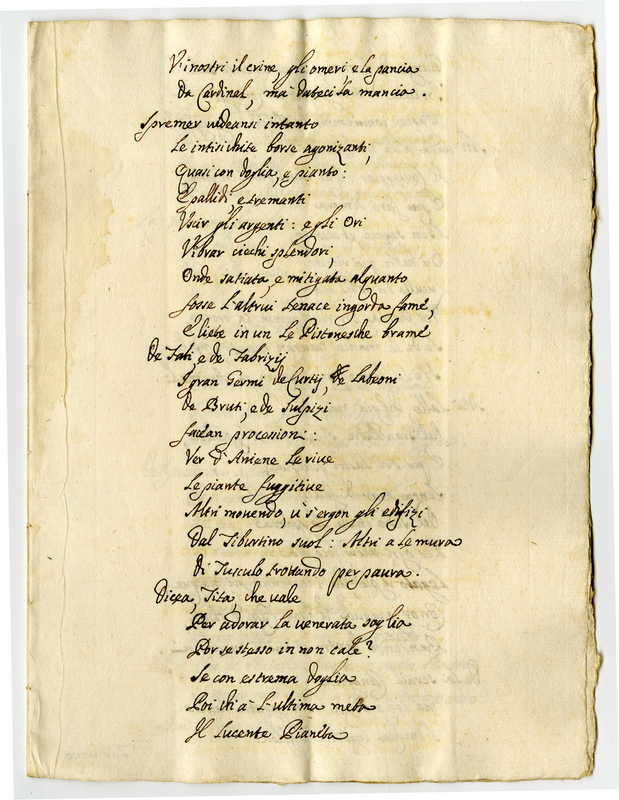 V'inostri il crine, gli omeri e la pancia
Da Cardinal, ma dateci la mancia.
Spremer vedeansi intanto
Le intisichite borse agonizanti,
Quasi con doglia, e pianto:
E pallidi, e tremanti
Uscir gli argenti: e gli Ori
Vibrar ciechi splendori,
Onde satiata, e mitigata alquanto
fosse l'altrui tenace ingorda fame,
E liete in un le Pistonesche brame
De Fabi, e de Fabrizij
I gran Germi de Curtij, de Labeoni
de Bruti, e de Sulpizi
facean processioni:
Ver d'Aniene le rive
Le piante fuggitive
Altri movendo, u' s'ergon gli edifizi
Dal Tiburtino suol: Altri a le mura
di Tusculo trottando per paura.
Dicea, Tita, che vale
Per adorar la venerata soglia
Por se stesso in non cale?
Se con estrema doglia
Poi di a l'ultima meta
Il lucente Pianeta